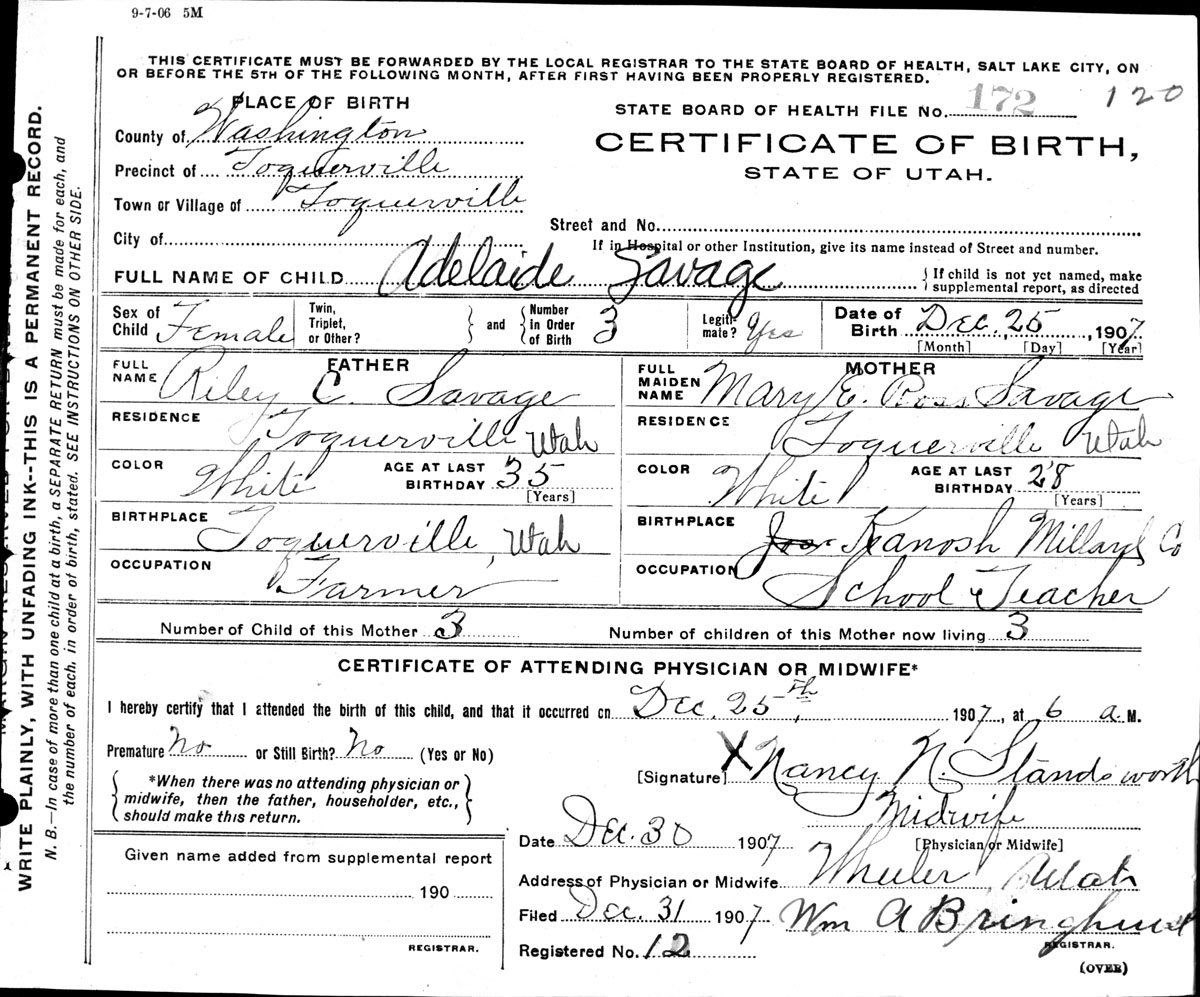 9-7-06 5M
THIS CERTIFICATE MUST BE FORWARDED BY THE LOCAL REGISTRAR TO THE STATE BOARD OF HEALTH, SALT LAKE CITY, ON
OR BEFORE THE 5TH OF THE FOLLOWING MONTH, AFTER FIRST HAVING BEEN PROPERLY REGISTERED.
WRITE PLAINLY, WITH UNFADING INK--THIS IS A PERMANENT RECORD.
N. B.—In case of more than one child at a birth, a SEPARATE RETURN must be made for each, and
the number of each, in order of birth, stated. SEE INSTRUCTIONS ON OTHER SIDE.
PLACE OF BIRTH
County of Washington
Precinct of Toquerville
Town or Village of Toquerville
City of
STATE BOARD OF HEALTH FILE No. 172 120
CERTIFICATE OF BIRTH,
STATE OF UTAH.
Street and No.
If in Hospital or other Institution, give its name instead of Street and number.
FULL NAME OF CHILD Adelaide Savage
If child is not yet named, make
supplemental report, as directed
Sex of Child Female
Twin, Triplet, or Other?
and Number in Order of Birth 3
Legitimate? Yes
Date of Birth Dec. 25, 1907.
[Month] [Day] [Year]
FATHER
FULL NAME Riley C. Savage
RESIDENCE Toquerville Utah
COLOR White AGE AT LAST BIRTHDAY 35
[Years]
BIRTHPLACE Toquerville, Utah
OCCUPATION Farmer
MOTHER
FULL MAIDEN NAME Mary E. Ross Savage
RESIDENCE Toquerville Utah
COLOR White AGE AT LAST BIRTHDAY 28
[Years]
BIRTHPLACE Kanosh Millard Co
OCCUPATION School Teacher
Number of Child of this Mother 3 Number of children of this Mother now living 3
CERTIFICATE OF ATTENDING PHYSICIAN OR MIDWIFE*
I hereby certify that I attended the birth of this child, and that it occurred on Dec. 25th, 1907, at 6 a.M.
Premature No or Still Birth? No (Yes or No)
*When there was no attending physician or
midwife, then the father, householder, etc.,
should make this return.
[Signature] X Nancy N. Standsworth
Midwife
[Physician or Midwife]
Date Dec. 30 1907
Address of Physician or Midwife Wheeler, Utah
Filed Dec. 31 1907 Wm A Bringhurst
REGISTRAR.
Registered No. 12
(OVER)
Given name added from supplemental report
190
REGISTRAR.